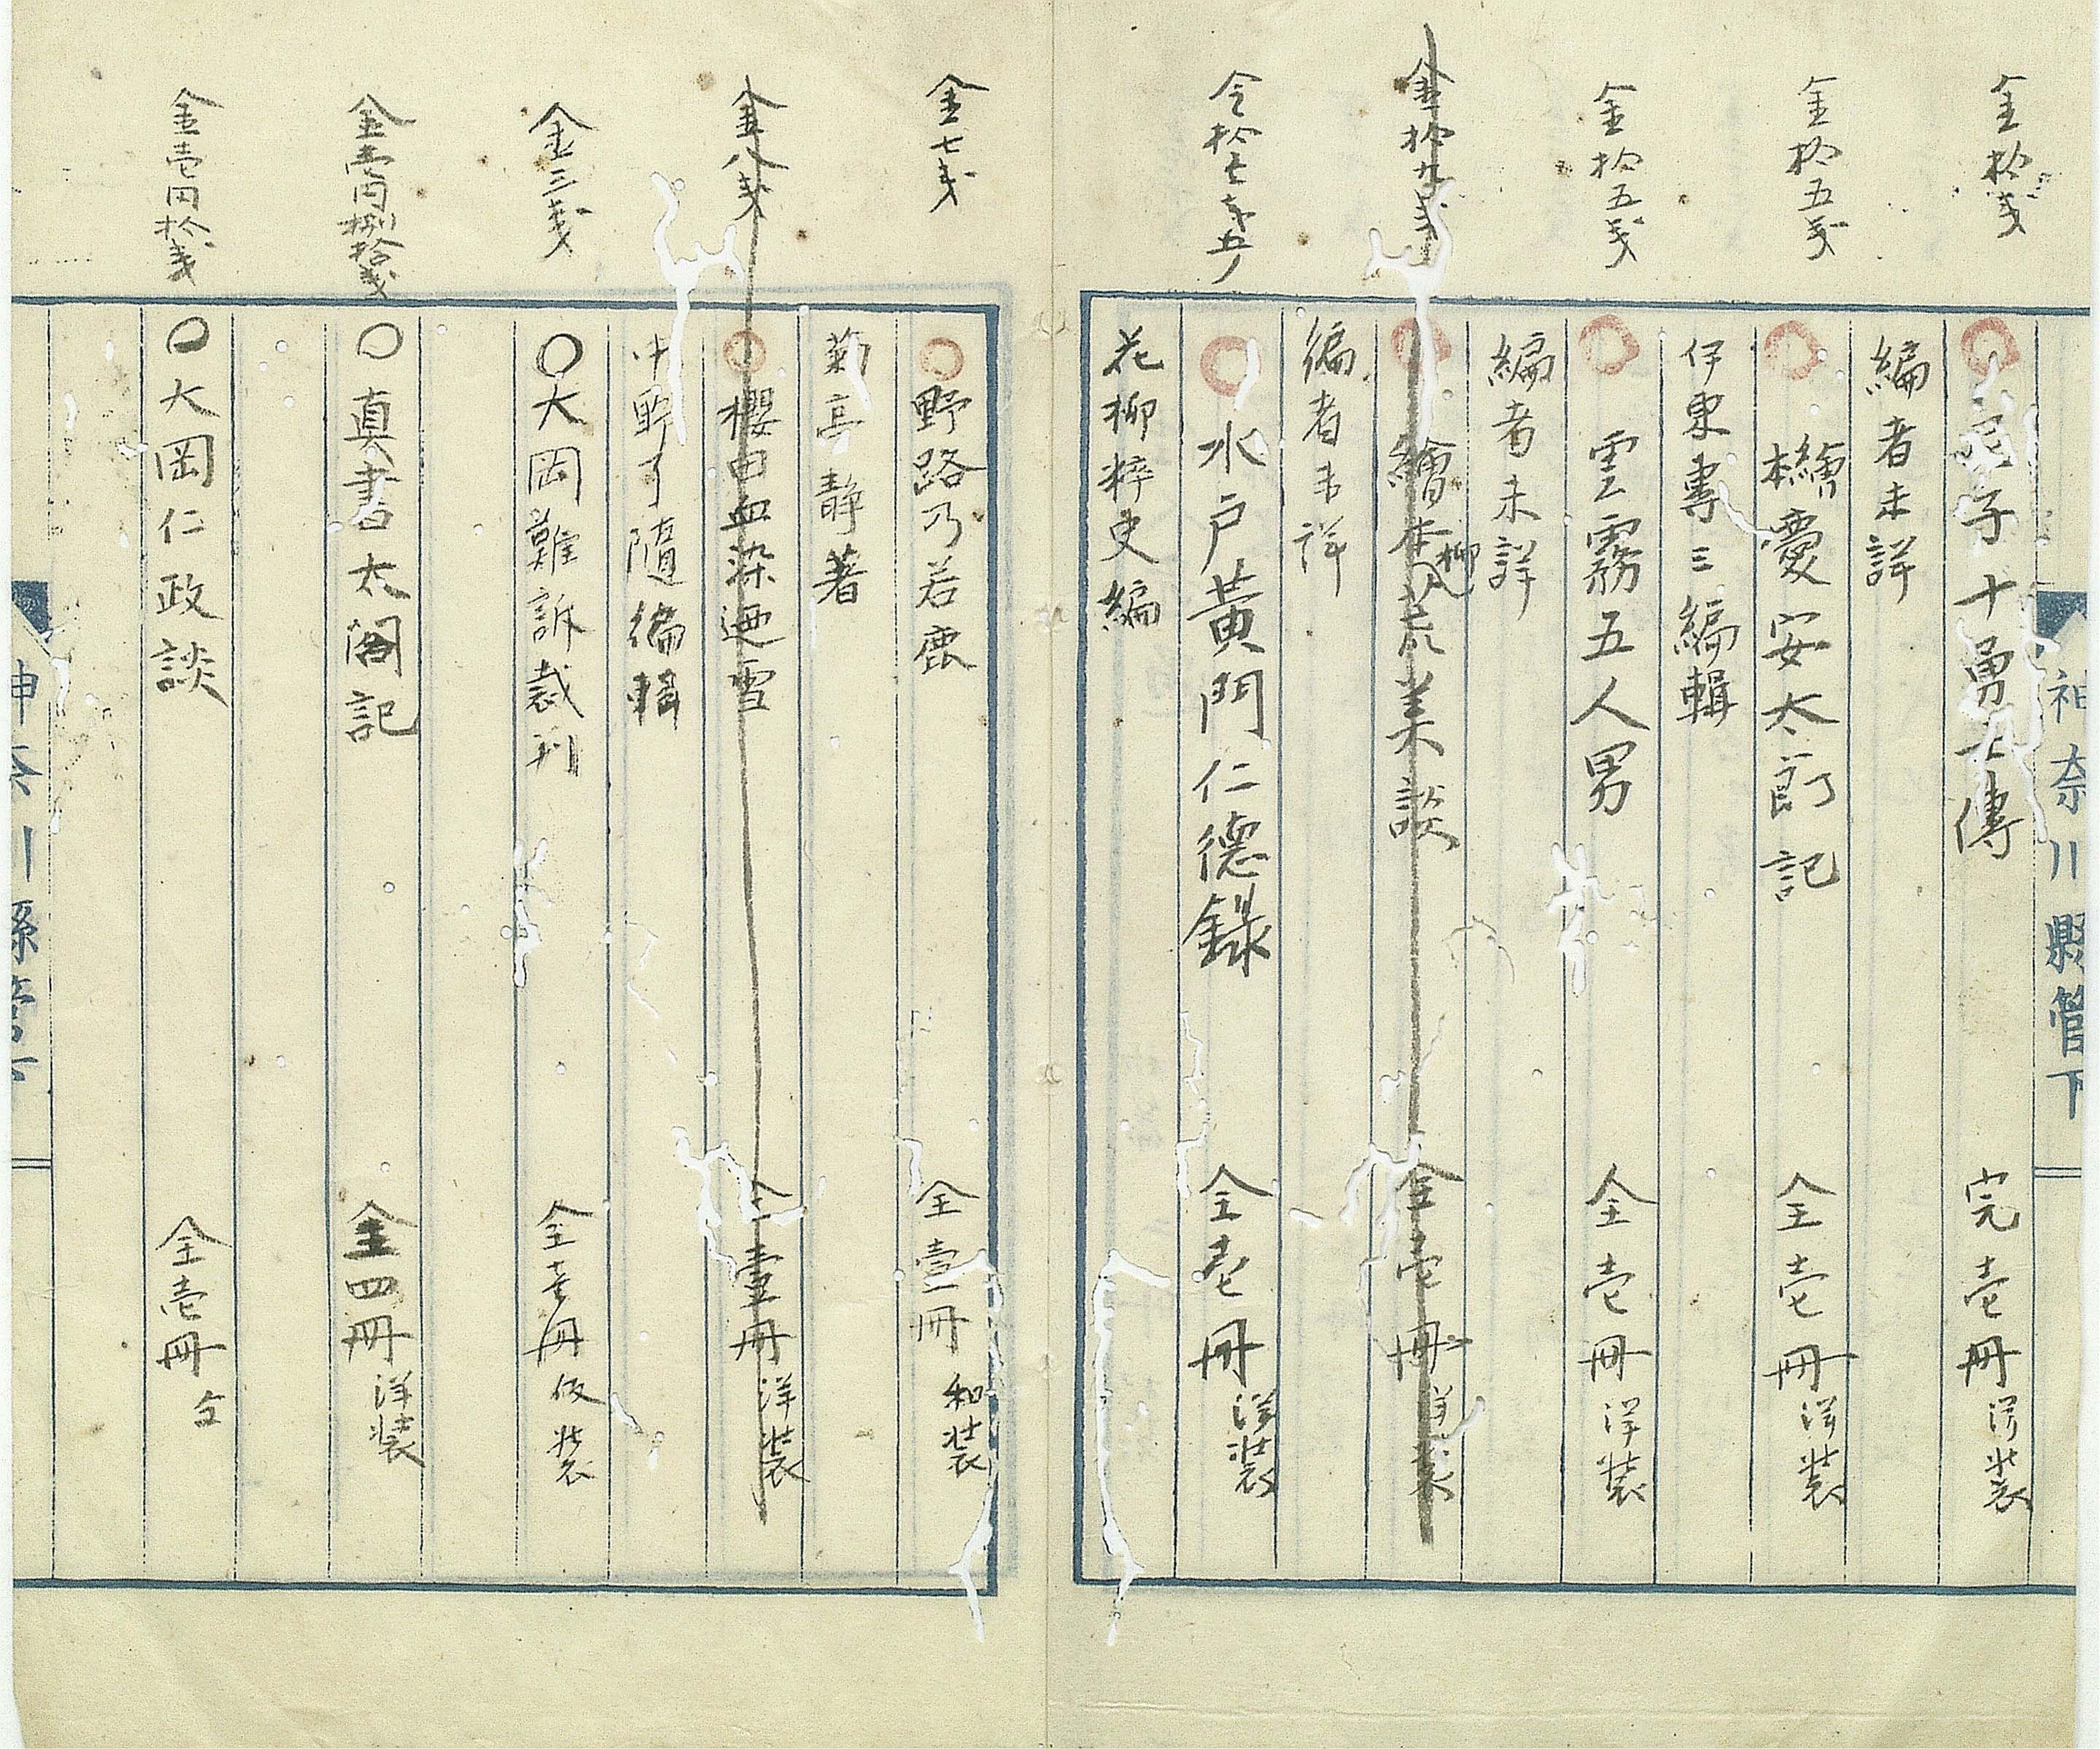 神奈川縣管下
金拾戔
尼子十勇士傳 完壱冊 洋装
編者未詳
金拾五戔
繪本慶安太郎記 全壱冊 洋装
伊東専三編輯
金拾五戔
雲霧五人男 全壱冊 洋装
編者未詳
金拾九戔
繪本柳荒美談 全壱冊 洋装
編者未詳
金拾七戔五
水戸黄門仁德録 全壱冊 洋装
花柳粹史編
金七戔
野路乃若鹿 全壹冊 和装
菊亭静著
金八戔
櫻田血染廼雪 全壹冊 洋装
中野了随編輯
金三戔
大岡難訴裁判 全壱冊 仮装
金壱円捌拾戔
真書太閤記 全四冊 洋装
金壱円拾戔
大岡仁政談 全壱冊 仝
神奈川縣管下